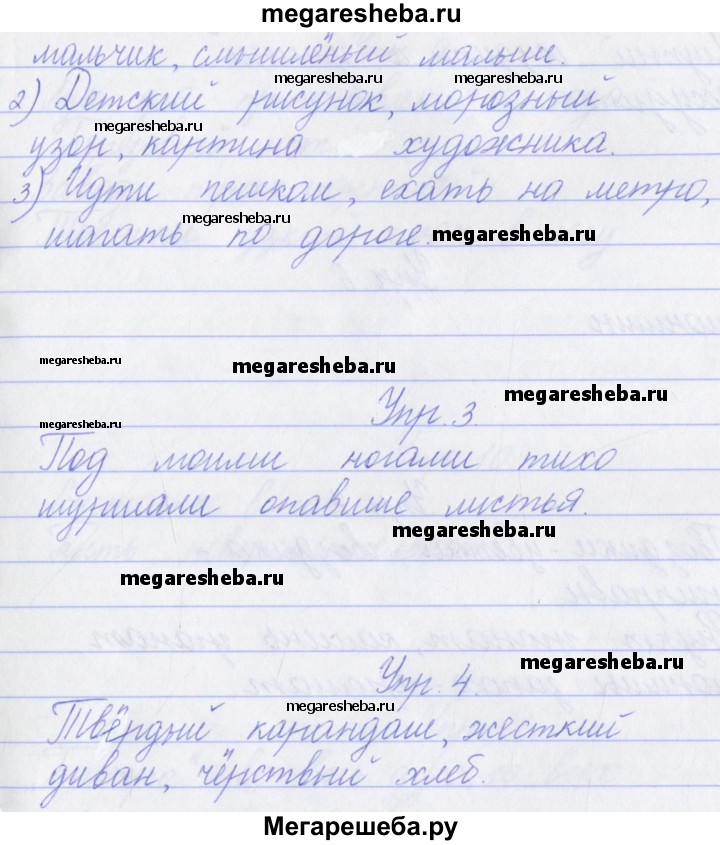 megaresheba.ru
мальчик, смышлёный малыш.
megaresheba.ru megaresheba.ru
2) Детский рисунок, морозный
megaresheba.ru
узор, картина художника.
3) Идти пешком, ехать на метро,
megaresheba.ru
шагать по дороге.
megaresheba.ru
megaresheba.ru
megaresheba.ru
megaresheba.ru
Упр. 3
megaresheba.ru
Под моими ногами тихо
шуршали опавшие листья.
megaresheba.ru
megaresheba.ru
megaresheba.ru
Упр. 4
megaresheba.ru
Твёрдый карандаш, жесткий
диван, чёрствый хлеб.
Мегарешеба.ру